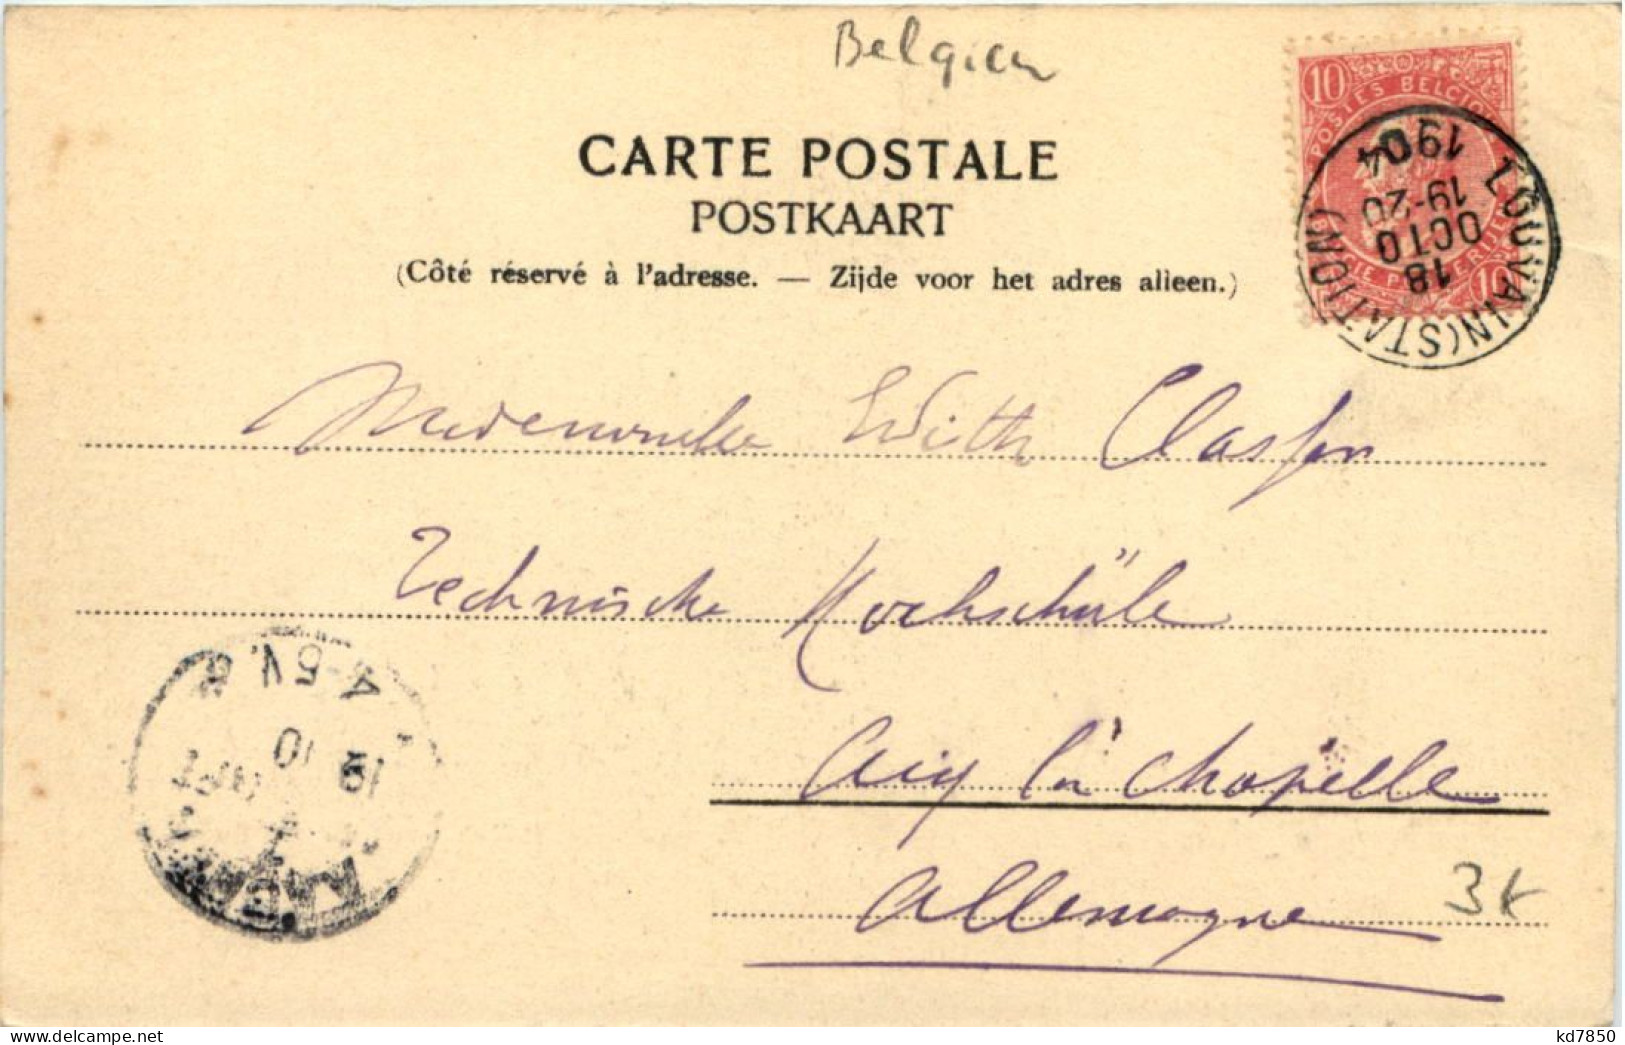 Belgien
CARTE POSTALE
POSTKAART
(Côté réservé à l'adresse. — Zijde voor het adres alleen.)
10
POSTES BELGIQUE
10
LOUVAIN (STATION)
18
OCTO
19-20
1904
Mademoiselle Edith Classen
Technische Hochschüle
Aix la Chapelle
Allemagne
3x
4-5V.
19 10
kd7850